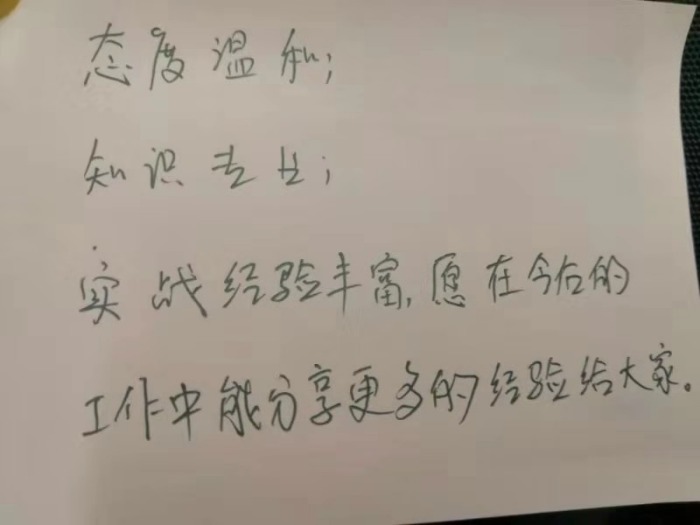 态度温和；
知识专业；
实战经验丰富，愿在今后的
工作中能分享更多的经验给大家。